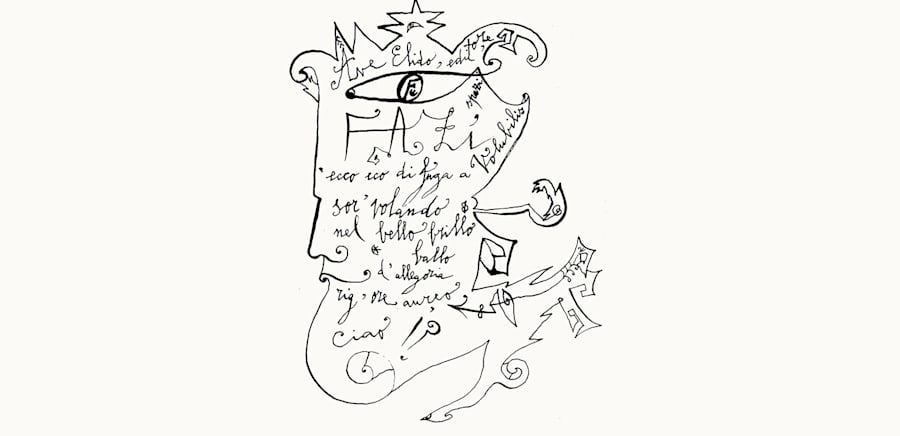 Ave Elido, editore
spazi
FAZI
Volubilis
ecco eco di fuga a
sor'volando
nel bello brillo
ballo
d'allegoria
rig, ore aureo
ciao !?